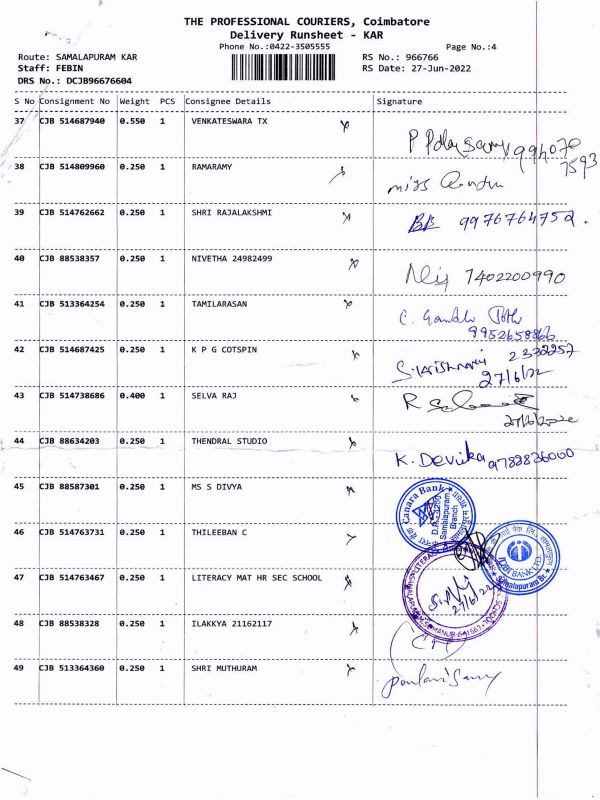 THE PROFESSIONAL COURIERS, Coimbatore
Delivery Runsheet - KAR
Phone No.:0422-3505555
Page No.:4
Route: SAMALAPURAM KAR
RS No.: 966766
Staff: FEBIN
RS Date: 27-Jun-2022
DRS No.: DCJB96676604
S No Consignment No Weight PCS Consignee Details Signature
37 CJB 514687940 0.550 1 VENKATESWARA TX
38 CJB 514809960 0.250 1 RAMARAMY
miss
39 CJB 514762662 0.250 1 SHRI RAJALAKSHMI
9976764752.
40 CJB 88538357 0.250 1 NIVETHA 24982499
7402200990
41 CJB 513364254 0.250 1 TAMILARASAN
C.
9952658866
42 CJB 514687425 0.250 1 K P G COTSPIN
2332257
27/6/22
43 CJB 514738686 0.400 1 SELVA RAJ
R
27/6/2022
44 CJB 88634203 0.250 1 THENDRAL STUDIO
K. Devika 9788836000
45 CJB 88587301 0.250 1 MS S DIVYA
Canara Bank
Samalapuram
Branch
46 CJB 514763731 0.250 1 THILEEBAN C
IDBI BANK LTD.
Samalapuram Br.
47 CJB 514763467 0.250 1 LITERACY MAT HR SEC SCHOOL
27/6/22
48 CJB 88538328 0.250 1 ILAKKYA 21162117
49 CJB 513364360 0.250 1 SHRI MUTHURAM